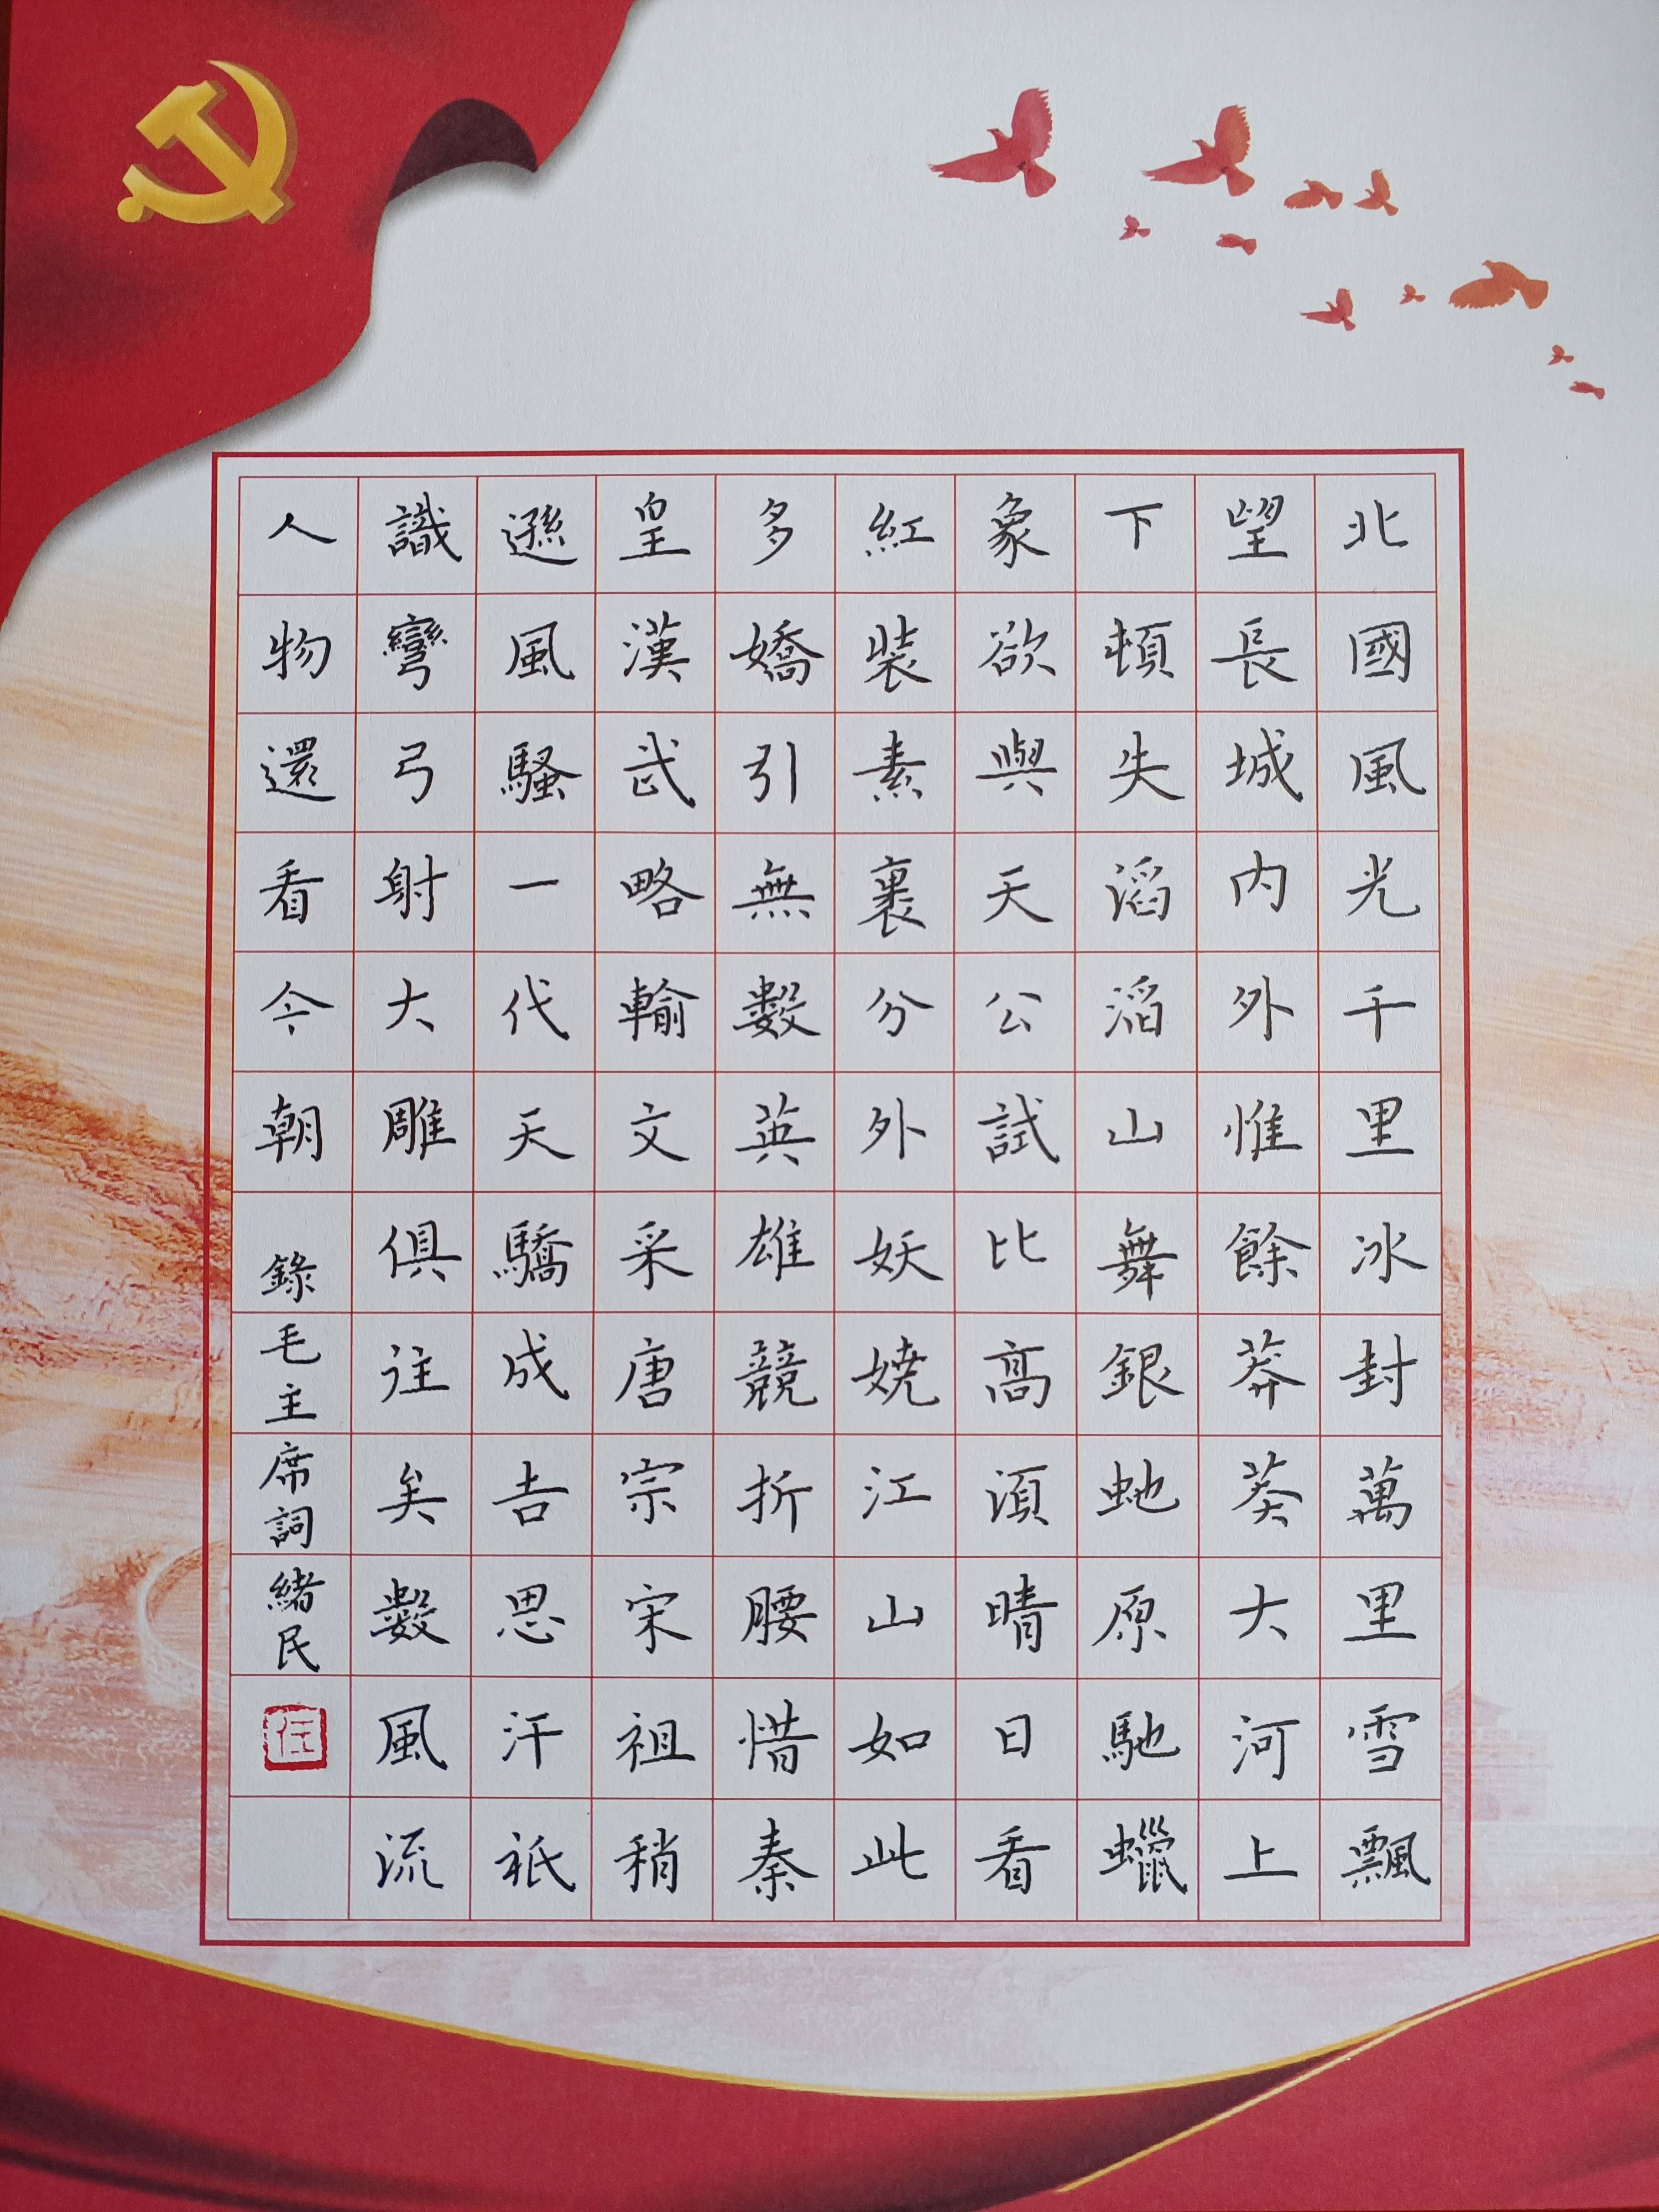 北國風光千里冰封萬里雪飄
望長城內外惟餘莽莽大河上
下頓失滔滔山舞銀虵原馳蠟
象欲與天公試比高湏晴日看
紅裝素裹分外妖嬈江山如此
多嬌引無數英雄競折腰惜秦
皇漢武略輸文采唐宗宋祖稍
遜風騷一代天驕成吉思汗祇
識彎弓射大雕俱往矣數風流
人物還看今朝 錄毛主席詞 緒民
任